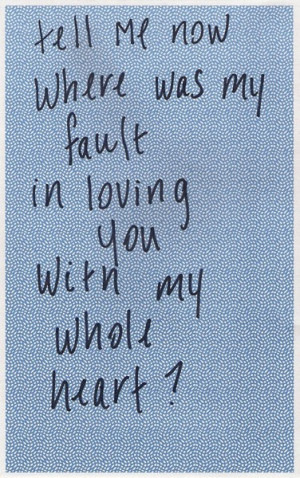 tell me now
where was my
fault
in loving
you
with my
whole
heart?